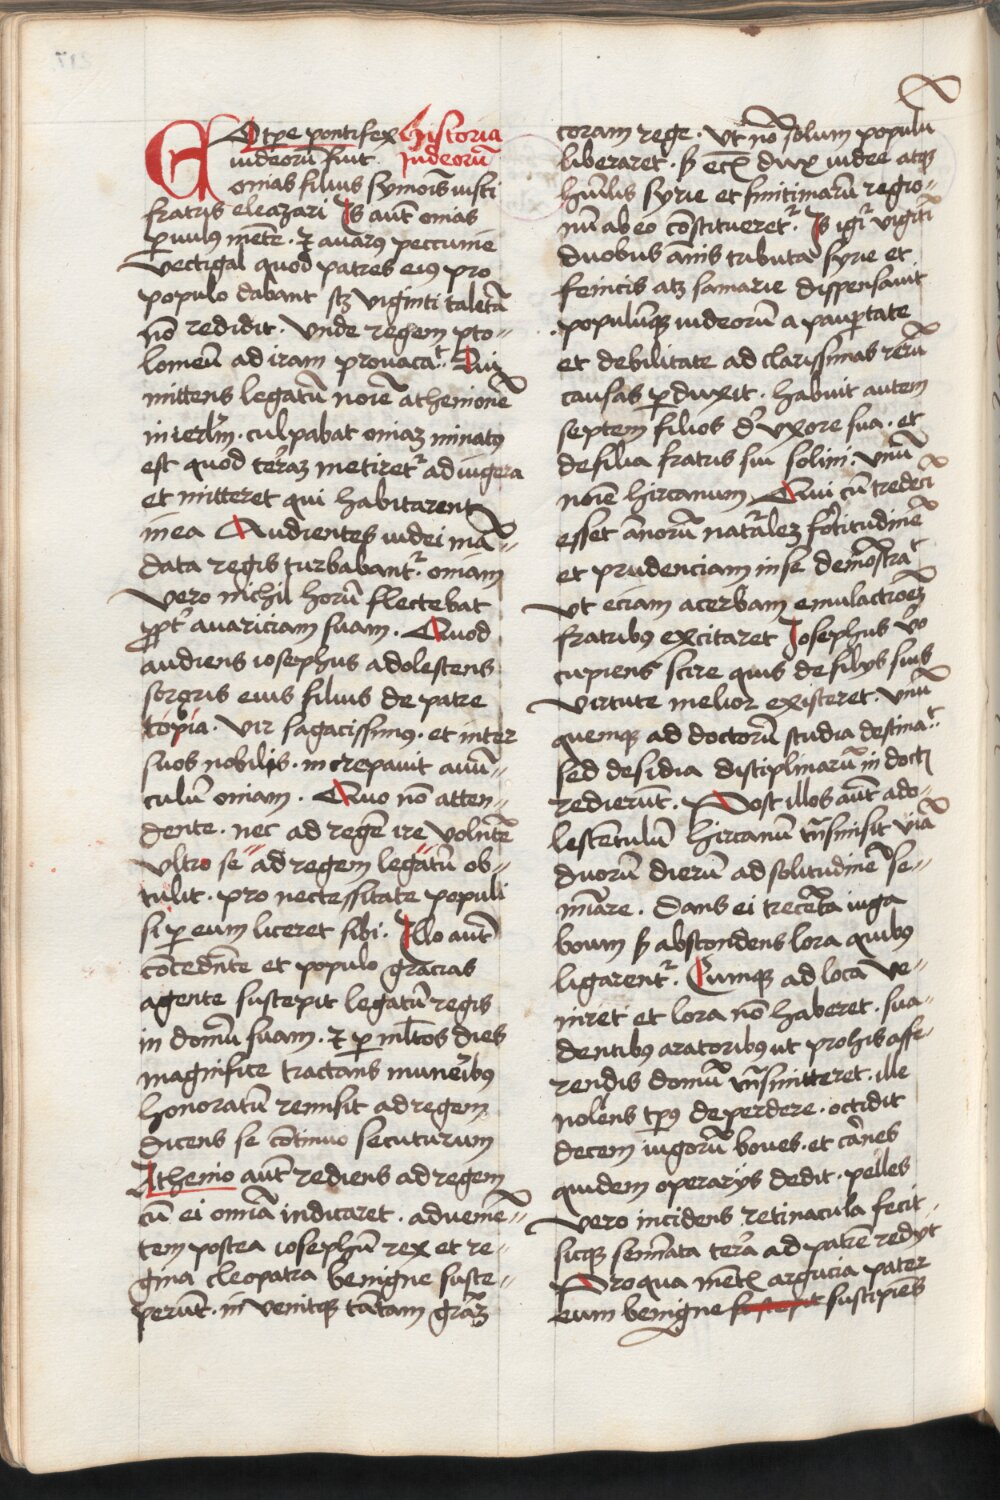 Eo tp̄e pontifex Historia
iudeorū fuit Judeorū
onias filius symonis iusti
fratris eleazari Js aūt onias
ꝑuulꝰ mēte · ⁊ auarꝰ peccunie
Vectigal quod patres eiꝰ pro
populo dabant scꝫ viginti talētā
nō redidit · Vnde regem pto-
lomeū ad iram prouocaᵗ · Qui
mittens legatū noīe athenionē
in ierl̄m · culpabat oniaꝫ minatꝰ
est quod terraꝫ metiretᷣ ad iugera
et mitteret qui habitarent
in ea Audientes iudei mā-
data regis turbabantᷣ · oniam
Vero nichil horū flectebat
ꝓpt̄ auariciam suam · Quod
audiens iosephus adolescens
sororis eius filius de patre
tobia · Vir sagacissimꝰ · et inter
suos nobilis · increpauit auū-
culū oniam · Quo nō atten-
dente · nec ad regē ire volētē
Vltro se ad regem legatū ob-
tulit · pro necessitate populi
si ꝑ eum liceret sibi · Jllo aūt
cōcedēte et populo gracias
agente suscepit legatū regis
in domū suam · ⁊ ꝑ ml̄tos dies
magnifice tractans munēibꝰ
honoratū remisit ad regem
dicens se cōtinuo secuturum
Athenio aūt rediens ad regem
cū ei omīa indicaret · aduenie-
tem postea iosephū rex et re-
gina cleopatra benigne susce-
perūt · inuenitqꝫ tātam grāꝫ
coram rege · Vt nō solum populū
liberaret · sꝫ etc̄ dux iudee atqꝫ
huīlis syrie et finitimarū regio-
nū ab eo cōstitueretᷣ · Js igiᷣ viginti
duobus ānis tributa syrie et
fenicis atqꝫ samarie dispensauit
populūqꝫ iudeorū a paupertate
et debilitate ad clarissimas rerū
causas ꝑduxit · habuit autem
septem filios de vxore sua · et
de filia fratris sui solim · vnū
noīe hircanum Qui cū tredecī
esset ānorū natᷣalez fortitudinē
et prudenciam in se demōstraᵗ
Vt eciam acerbam emulactioēꝫ
fratribꝰ excitaret Josephus vo
cupiens scire quis de filijs suis
Virtute melior existeret · Vnū
quemqꝫ ad doctorū studia destinaᵗ
sed desidia disciplinarū indocti
redierūt · Post illos aūt ado-
lescētulū hircanū trāsmisit viā
duorū dierū ad solitudinē se-
mīare · Dans ei trecēta iuga
boum sꝫ abscondens lora quibꝰ
ligarentᷣ · Cumqꝫ ad loca ve-
niret et lora nō haberet · sua-
dentibꝰ aratoribꝰ ut pro his affe-
rendis domū trāsmitteret · ille
nolens tp̄ꝰ deperdere · occidit
decem iugorū boues · et carnes
quidem operarijs dedit · pelles
Vero incidens retinacula fecit
sicqꝫ semīata terra ad patrē redyt
Pro qua mētis argucia pater
eum benigne suscepit suscipiēs